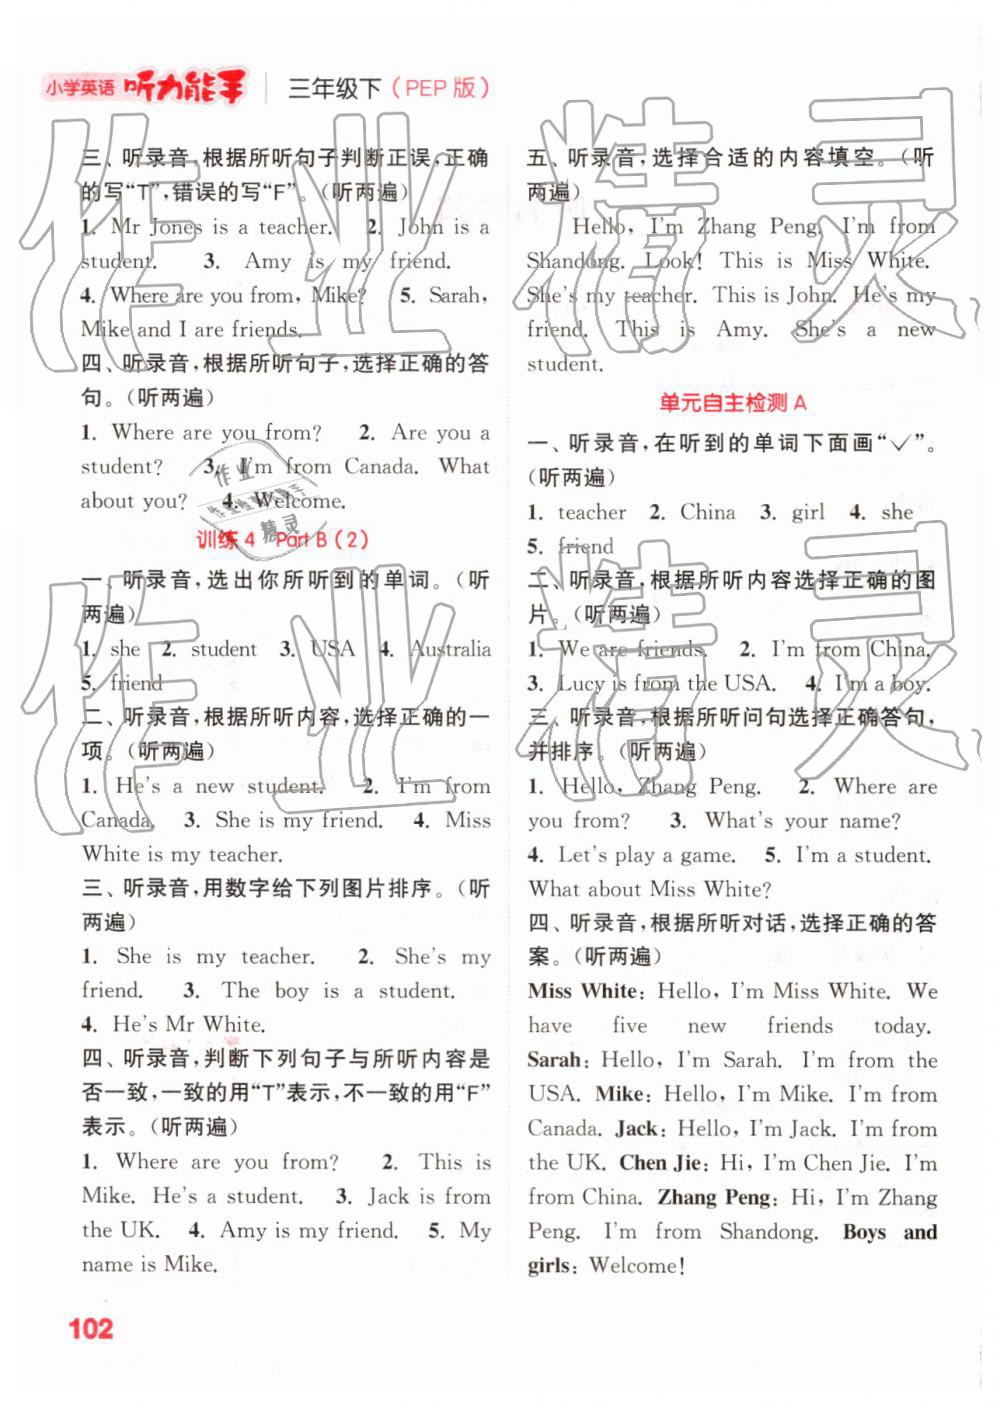 小学英语 听力能手 三年级下（PEP 版）
三、听录音，根据所听句子判断正误，正确
的写“T”，错误的写“F”。（听两遍）
1. Mr Jones is a teacher. 2. John is a
student. 3. Amy is my friend.
4. Where are you from, Mike? 5. Sarah,
Mike and I are friends.
四、听录音，根据所听句子，选择正确的答
句。（听两遍）
1. Where are you from? 2. Are you a
student? 3. I'm from Canada. What
about you? 4. Welcome.
训练 4 Part B（2）
一、听录音，选出你所听到的单词。（听
两遍）
1. she 2. student 3. USA 4. Australia
5. friend
二、听录音，根据所听内容，选择正确的一
项。（听两遍）
1. He's a new student. 2. I'm from
Canada. 3. She is my friend. 4. Miss
White is my teacher.
三、听录音，用数字给下列图片排序。（听
两遍）
1. She is my teacher. 2. She's my
friend. 3. The boy is a student.
4. He's Mr White.
四、听录音，判断下列句子与所听内容是
否一致，一致的用“T”表示，不一致的用“F”
表示。（听两遍）
1. Where are you from? 2. This is
Mike. He's a student. 3. Jack is from
the UK. 4. Amy is my friend. 5. My
name is Mike.
五、听录音，选择合适的内容填空。（听
两遍）
Hello, I'm Zhang Peng. I'm from
Shandong. Look! This is Miss White.
She's my teacher. This is John. He's my
friend. This is Amy. She's a new
student.
单元自主检测 A
一、听录音，在听到的单词下面画“✓”。
（听两遍）
1. teacher 2. China 3. girl 4. she
5. friend
二、听录音，根据所听内容选择正确的图
片。（听两遍）
1. We are friends. 2. I'm from China.
3. Lucy is from the USA. 4. I'm a boy.
三、听录音，根据所听问句选择正确答句，
并排序。（听两遍）
1. Hello, Zhang Peng. 2. Where are
you from? 3. What's your name?
4. Let's play a game. 5. I'm a student.
What about Miss White?
四、听录音，根据所听对话，选择正确的答
案。（听两遍）
Miss White: Hello, I'm Miss White. We
have five new friends today.
Sarah: Hello, I'm Sarah. I'm from the
USA. Mike: Hello, I'm Mike. I'm from
Canada. Jack: Hello, I'm Jack. I'm from
the UK. Chen Jie: Hi, I'm Chen Jie. I'm
from China. Zhang Peng: Hi, I'm Zhang
Peng. I'm from Shandong. Boys and
girls: Welcome!
102
作业精灵
作业精灵
作业
精灵